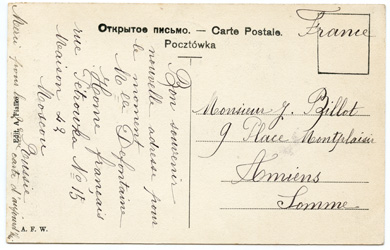 Открытое письмо. — Carte Postale.
Pocztówka
France
Monsieur J. Billot
9 Place Montplaisir
Amiens
Somme
Bon souvenir
nouvelle adresse pour
le moment
M de Lafontaine
Home français
rue Petrowka No 15
Maison
Moscou
Russie
Merci pour
carte d'aujourd'hui
A. F. W.